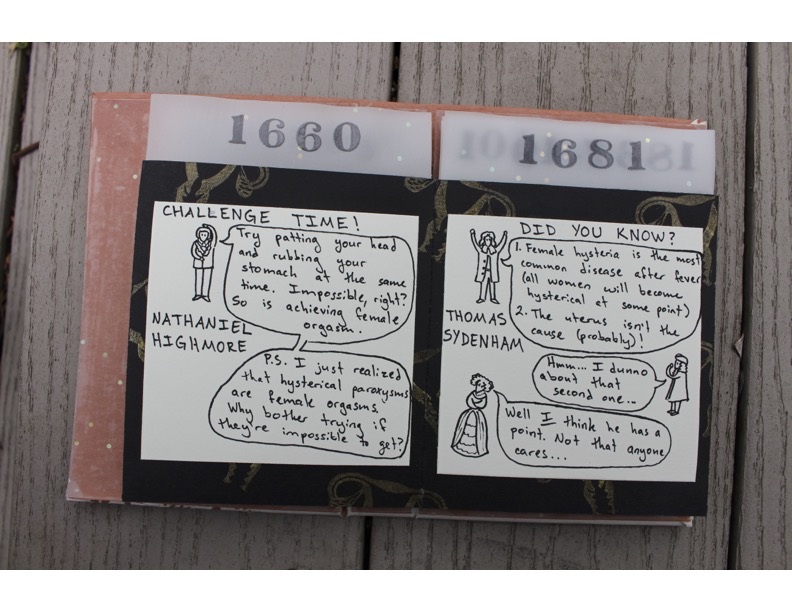 1660
CHALLENGE TIME!
Try patting your head
and rubbing your
stomach at the same
time. Impossible, right?
So is achieving female
orgasm.
NATHANIEL
HIGHMORE
P.S. I just realized
that hysterical paroxysms
are female orgasms.
Why bother trying if
they're impossible to get?
1681
DID YOU KNOW?
1. Female hysteria is the most
common disease after fever
(all women will become
hysterical at some point)
2. The uterus isn't the
cause (probably)!
THOMAS
SYDENHAM
Hmm... I dunno
about that
second one...
Well I think he has a
point. Not that anyone
cares...